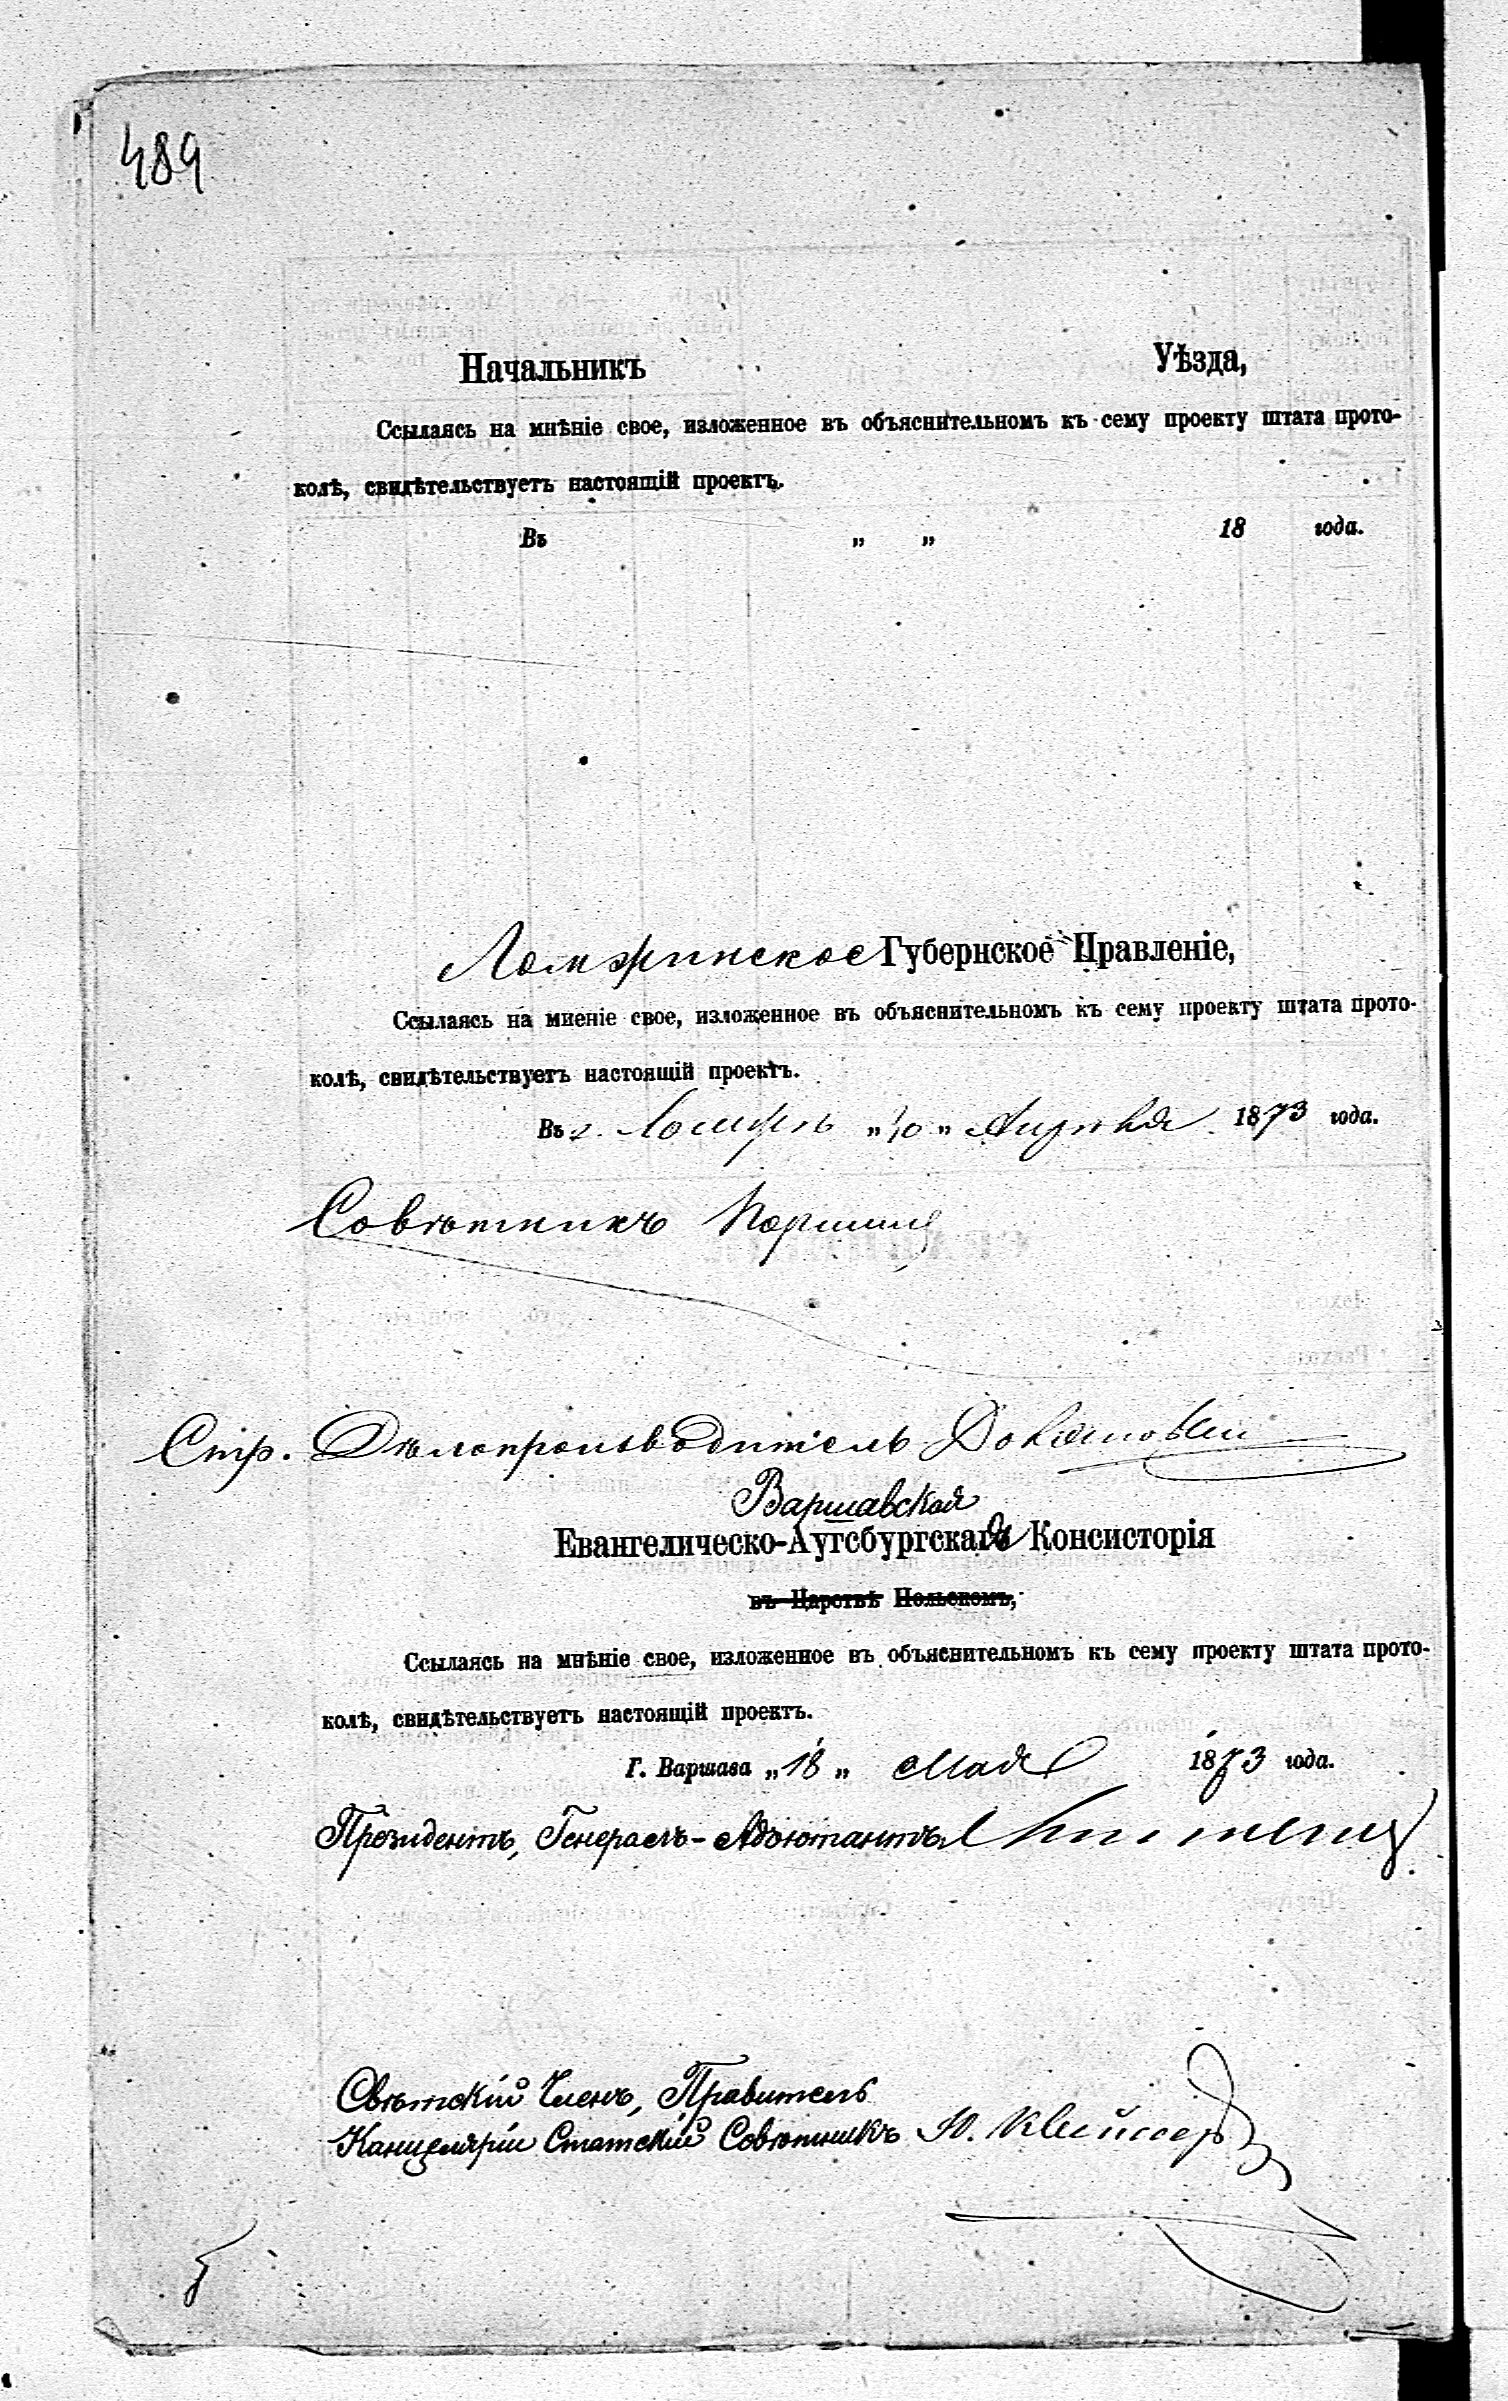 489
Начальникъ Уѣзда,
Ссылаясь на мнѣніе свое, изложенное въ объяснительномъ къ сему проекту штата прото-
колѣ, свидѣтельствуетъ настоящій проектъ.
Въ „ „ 18 года.
Ломжинское Губернское Правленіе,
Ссылаясь на мненіе свое, изложенное въ объяснительномъ къ сему проекту штата прото-
колѣ, свидѣтельствуетъ настоящій проектъ.
Въ г. Ломжѣ „10„ Апрѣля 1873 года.
Совѣтникъ
Стр. Дѣлопроизводитель
Варшавская
Евангелическо-Аугсбургская Консисторія
въ Царствѣ Польскомъ,
Ссылаясь на мнѣніе свое, изложенное въ объяснительномъ къ сему проекту штата прото-
колѣ, свидѣтельствуетъ настоящій проектъ.
Г. Варшава „18„ Мая 1873 года.
Президентъ, Генералъ-Адъютантъ
Свѣтскій Членъ, Правитель
Канцеляріи Статскій Совѣтникъ Ю.